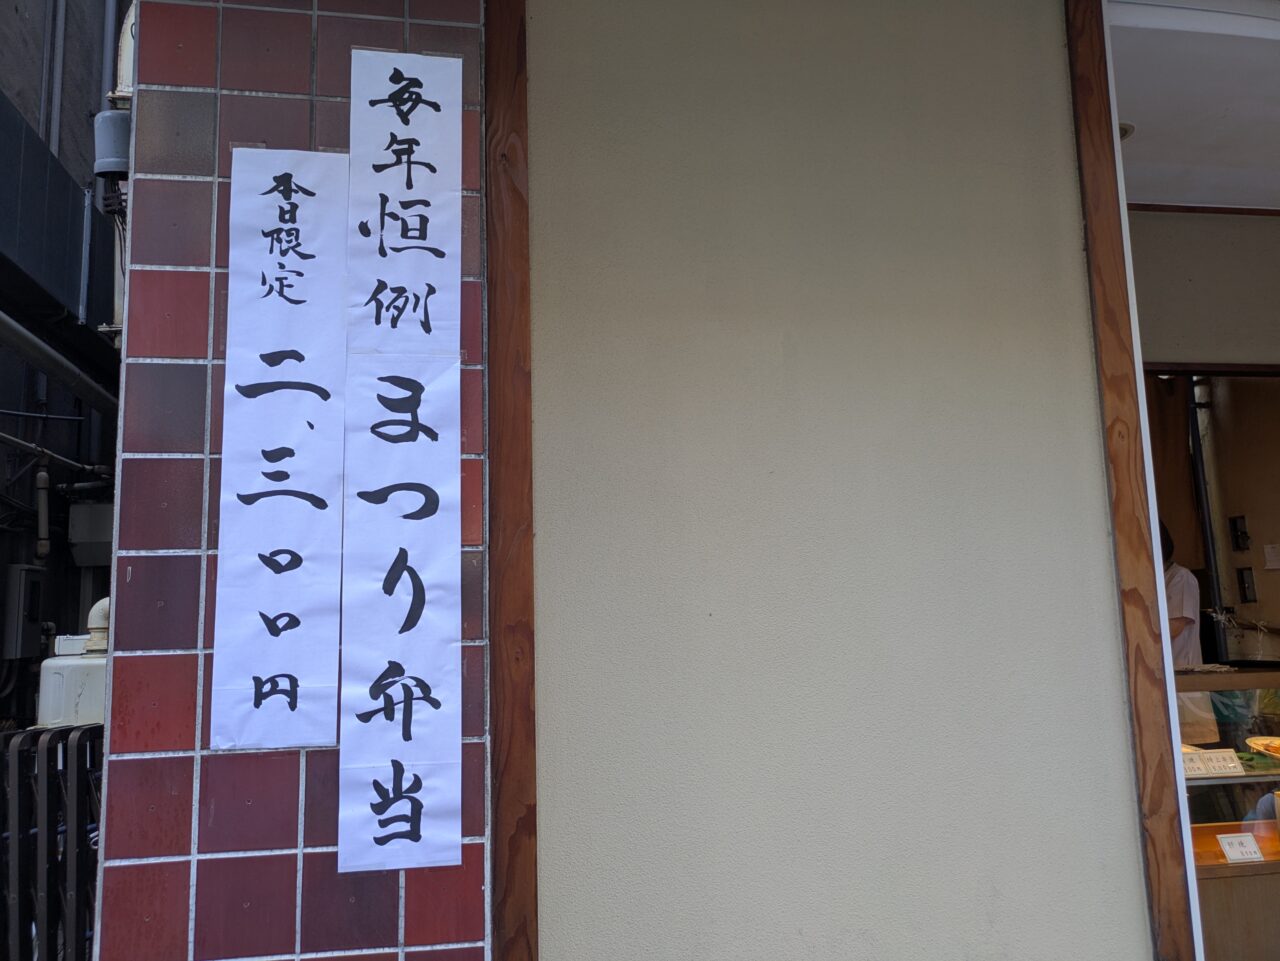 毎年恒例まつり弁当
本日限定 二、三〇〇円